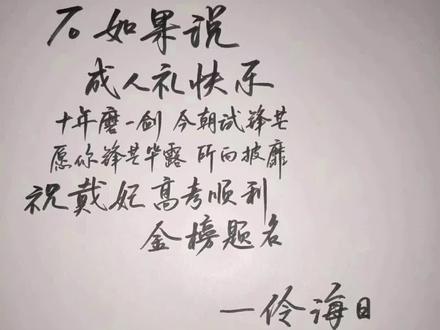 To 如果说
成人礼快乐
十年磨一剑 今朝试锋芒
愿你锋芒毕露 所向披靡
祝戴妃高考顺利
金榜题名
—伶海日